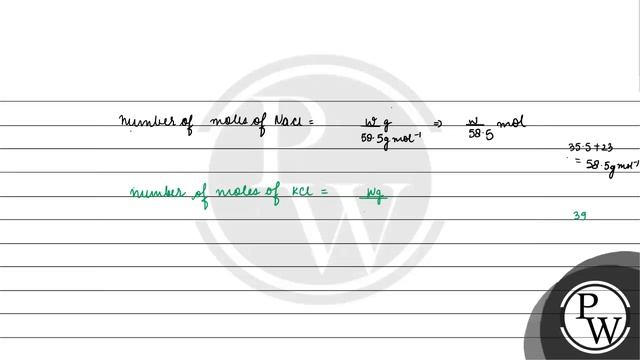 Number of moles of NaCl = W g / 58.5 g mol⁻¹ ⇒ W / 58.5 mol
35.5 + 23
= 58.5 g mol⁻¹
number of moles of KCl = Wg
39
P
W
P
W